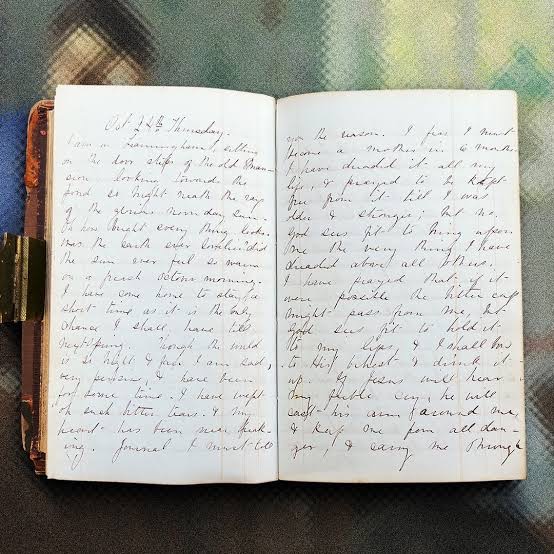 Oct 24th Thursday.
I am in Framingham, sitting
on the door steps of the old Man-
sion looking towards the
pond so bright neath the rays
of the glorious noon day sun.
Oh how bright every thing looks.
Was the earth ever lovelier did
the sun ever feel so warm
on a fresh Octon morning.
I have come home to stay a
short time as it is the only
chance I shall have till
next spring. Though the world
is so light & fair I am sad,
very serious, & have been
for some time. I have wept
oh such bitter tears. & my
heart has been near break-
ing. Journal I must tell
you the reason. I fear I must
become a mother in 6 months.
I have dreaded it all my
life, & prayed to be kept
free from it till I was
older & stronger; but no,
God sees fit to bring upon
me the very thing I have
dreaded above all others.
I have prayed that if it
were possible the bitter cup
might pass from me, but
God sees fit to hold it
to my lips, & I shall bow
to His behest & drink it
up. If Jesus will hear
my feeble cry, he will
cast his arm around me,
& keep me from all dan-
ger, & carry me through